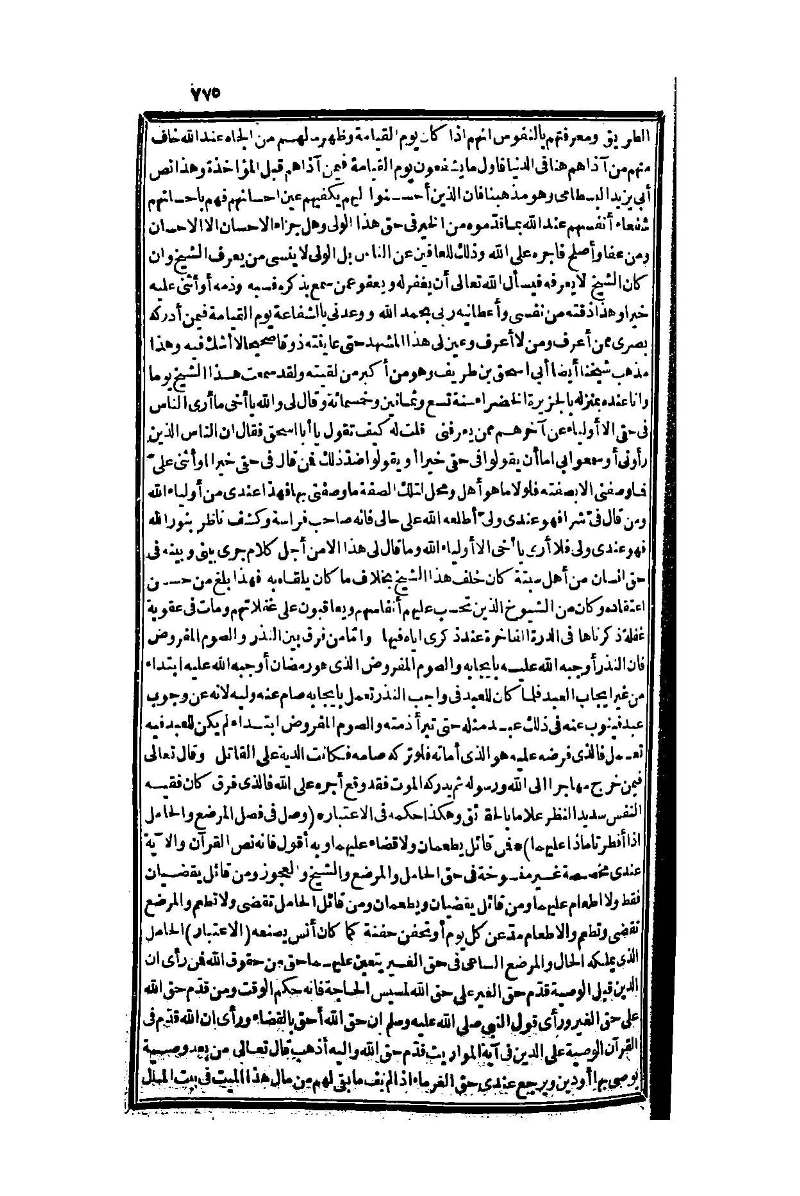 ٧٧٥
الطريق ومعرفتهم بالنفوس انهم اذا كان يوم القيامة وظهر ما لهم من الجاه عند الله خاف
منهم من آذاهم هنا فى الدنيا فاول ما يشفعون يوم القيامة فيمن آذاهم قبل المؤاخذة وهذا نص
أبى يزيد البسطامى وهو مذهبنا فان الذين أحسنوا اليهم يكفيهم عين احسانهم فهم باحسانهم
شفعاء أنفسهم عند الله بما قدموه من الخير فى حق هذا الولى وهل جزاء الاحسان الا الاحسان
ومن عفا وأصلح فاجره على الله وذلك للعافين عن الناس بل الولى لا ينسى من يعرف الشيخ وان
كان الشيخ لا يعرفه فيسأل الله تعالى أن يغفر له ويعفو عمن سمع بذكره فسبه وذمه أو أثنى عليه
خيرا وهذا ذقته من نفسى وأعطانيه ربى بحمد الله ووعدنى بالشفاعة يوم القيامة فيمن أدركه
بصرى ممن أعرف ومن لا أعرف وعين لى هذا المشهد حتى عاينته ذوقا صحيحا لا أشك فيه وهذا
مذهب شيخنا أيضا أبى اسحق بن طريف وهو من أكبر من لقيته ولقد سمعت هذا الشيخ يوما
وانا عنده بمنزله بالجزيرة الخضراء سنة تسع وثمانين وخمسمائة وقال لى والله يا أخى ما أرى الناس
فى حق الا أولياء عن آخرهم ممن يعرفنى قلت له كيف تقول يا أبا اسحق فقال ان الناس الذين
رأونى أو سمعوا بى اما أن يقولوا فى حقى خيرا أو يقولوا ضد ذلك فمن قال فى حقى خيرا وأثنى على
فما وصفنى الا بصفته فلولا ما هو أهل ومحل لتلك الصفة ما وصفنى بها فهذا عندى من أولياء الله
ومن قال فى شرا فهو عندى ولى أطلعه الله على حالى فانه صاحب فراسة وكشف ناظر بنور الله
فهو عندى ولى فلا أرى يا أخى الا أولياء الله وما قال لى هذا الا من أجل كلام جرى بينى وبينه فى
حق انسان من أهل سبتة كان خلف هذا الشيخ بخلاف ما كان يلقاه به فهذا بلغ من حسن
اعتقاده وكان من الشيوخ الذين تحسب عليهم أنفاسهم ويعاقبون على غفلاتهم ومات فى عقوبة
غفلة ذكرناها فى الدرة الفاخرة عند ذكرى اياه فيها واما من فرق بين النذر والصوم المفروض
فان النذر أوجبه الله عليه بايجابه والصوم المفروض الذى هو رمضان أوجبه الله عليه ابتداء
من غير ايجاب العبد فلما كان للعبد فى واجب النذر تعمل بايجابه صام عنه وليه لانه عن وجوب
عبد فينوب عنه فى ذلك عبد مثله حتى تبرأ ذمته والصوم المفروض ابتداء لم يكن للعبد فيه
تعمل فالذى فرضه عليه هو الذى أماته فلو تركه صامه فكانت الدية على القاتل وقال تعالى
فيمن خرج مهاجرا الى الله ورسوله ثم يدركه الموت فقد وقع أجره على الله فالذى فرق كان فقيه
النفس سديد النظر علاما بالحقائق وهكذا حكمه فى الاعتبار ه (وصل فى فصل المرضع والحامل
اذا أفطرتا ماذا عليهما)* فمن قائل يطعمان ولا قضاء عليهما وبه أقول فانه نص القرآن والآية
عندى مخصصة غير منسوخة فى حق الحامل والمرضع والشيخ والعجوز ومن قائل يقضيان
فقط ولا اطعام عليهما ومن قائل يقضيان ويطعمان ومن قائل الحامل تقضى ولا تطعم والمرضع
تقضى وتطعم والاطعام مد عن كل يوم أو تحفن حفنة كما كان أنس يصنعه (الاعتبار) الحامل
الذى يملكه الحال والمرضع الساعى فى حق الغير يتعين عليهما حق من حقوق الله فمن رأى ان
الدين قبل الوصية قدم حق الغير على حق الله لمسيس الحاجة فانه حكم الوقت ومن قدم حق الله
على حق الغير ورأى قول النبى صلى الله عليه وسلم ان حق الله أحق بالقضاء ورأى ان الله قدم فى
القرآن الوصية على الدين فى آية المواريث قدم حق الله واليه أذهب قال تعالى من بعد وصية
يوصى بها أو دين ويرجع عندى حق الغرماء اذا لم يف ما بقى لهم من مال هذا الميت فى بيت المال